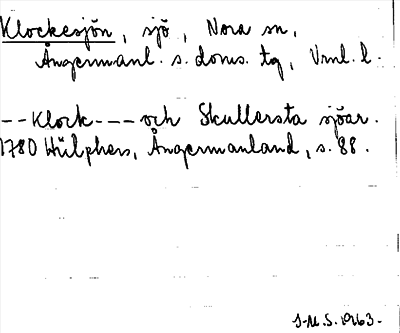 Klockesjön, sjö, Nora sn,
Ångermanl. s. doms. tg, Vrnl. l.
--- Klock --- och Skullersta sjöar.
1780 Hülphers, Ångermanland, s. 88.
J.M.S. 1963.